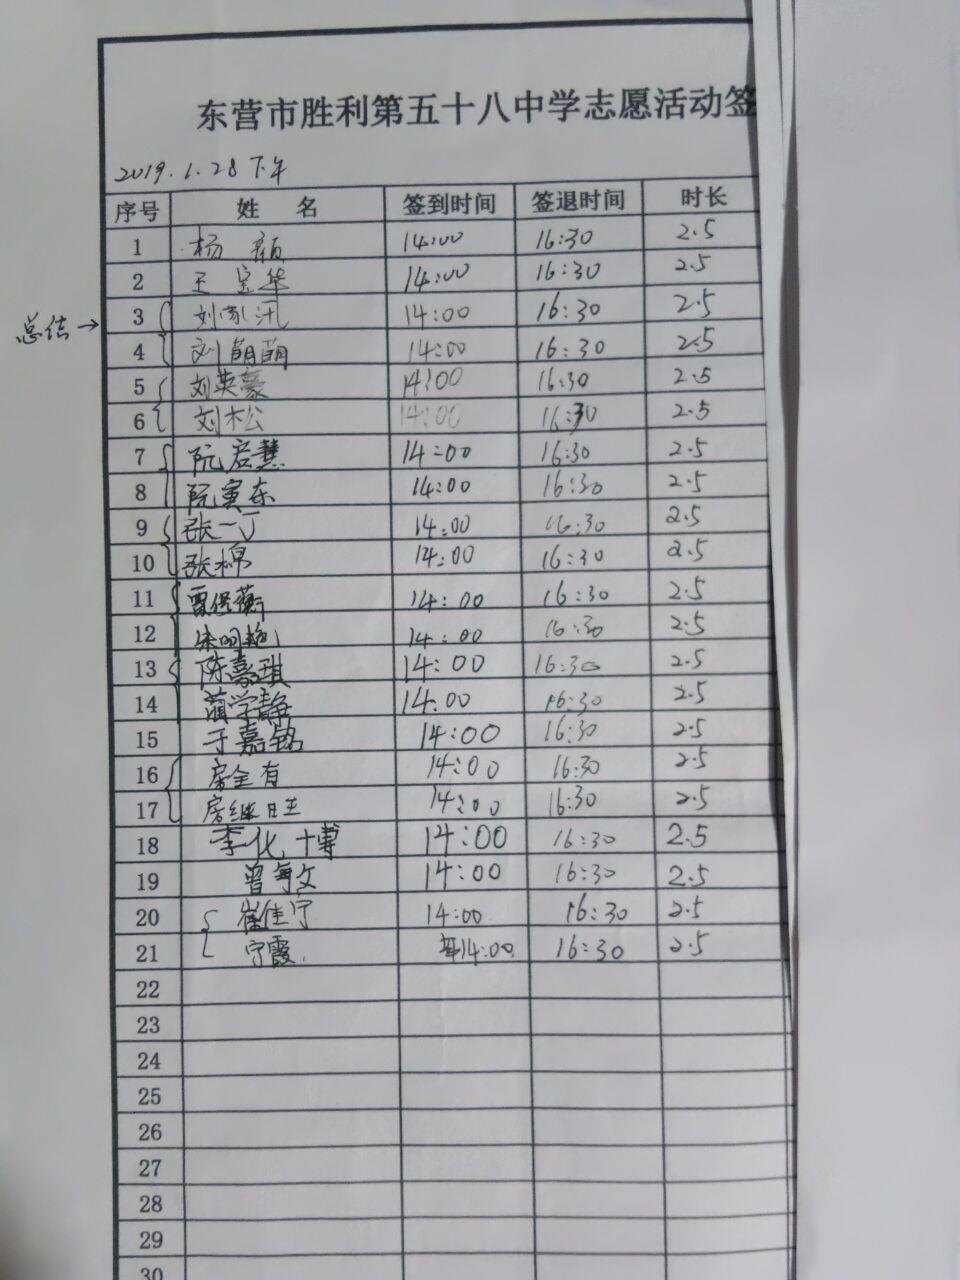 东营市胜利第五十八中学志愿活动签
2019.1.28下午
序号 姓 名 签到时间 签退时间 时长
1 杨 颜 14:00 16:30 2.5
2 王宝华 14:00 16:30 2.5
总结→ 3 刘家汛 14:00 16:30 2.5
4 刘萌萌 14:00 16:30 2.5
5 刘英豪 14:00 16:30 2.5
6 刘松 14:00 16:30 2.5
7 阮启慧 14:00 16:30 2.5
8 阮寅东 14:00 16:30 2.5
9 张一丁 14:00 16:30 2.5
10 张棉 14:00 16:30 2.5
11 14:00 16:30 2.5
12 朱明艳 14:00 16:30 2.5
13 陈嘉琪 14:00 16:30 2.5
14 蔺学静 14:00 16:30 2.5
15 于嘉铭 14:00 16:30 2.5
16 房全有 14:00 16:30 2.5
17 房继旺 14:00 16:30 2.5
18 李化博 14:00 16:30 2.5
19 曾海文 14:00 16:30 2.5
20 崔佳宁 14:00 16:30 2.5
21 宁霞 14:00 16:30 2.5
22
23
24
25
26
27
28
29
30